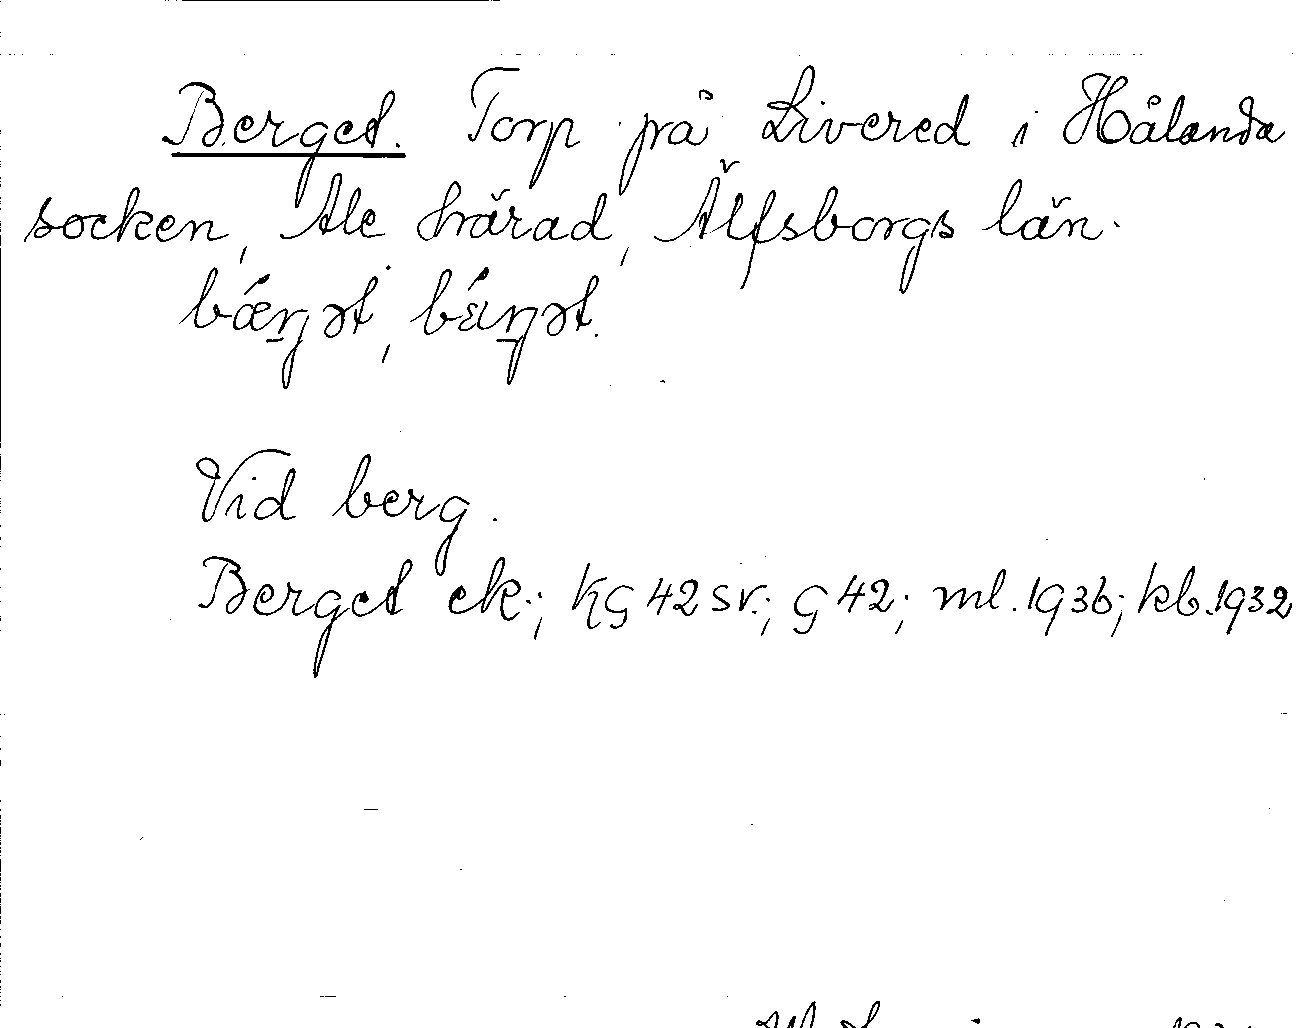 Berget. Torp på Livered i Hålanda
socken, Ale härad, Älfsborgs län.
Vid berg.
Berget ek.; KG 42 sv.; G 42; ml. 1936; kb. 1932